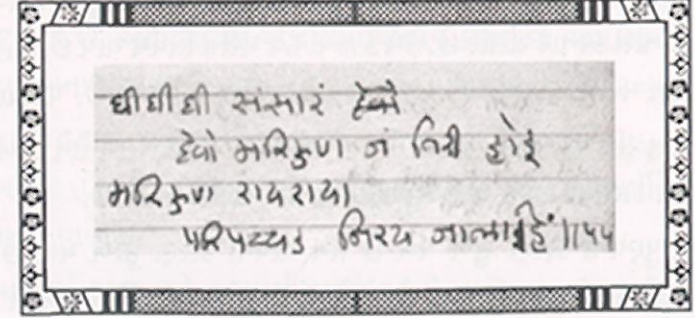 धी धी धी संसारं देवो
देवो मरिऊण जं तिरी होई
मरिऊण रायराया
परिपच्चइ निरय जालाहिं ॥५५